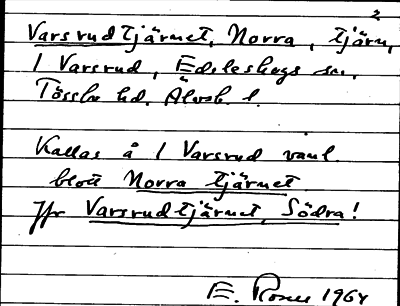 2
Varsrudtjärnet, Norra, tjärn,
i Varsrud, Edsleskogs sn,
Tössbo hd. Älvsb. l.
Kallas å i Varsrud vanl.
blott Norra tjärnet.
Jfr Varsrudtjärnet, Södra!
E. 1964